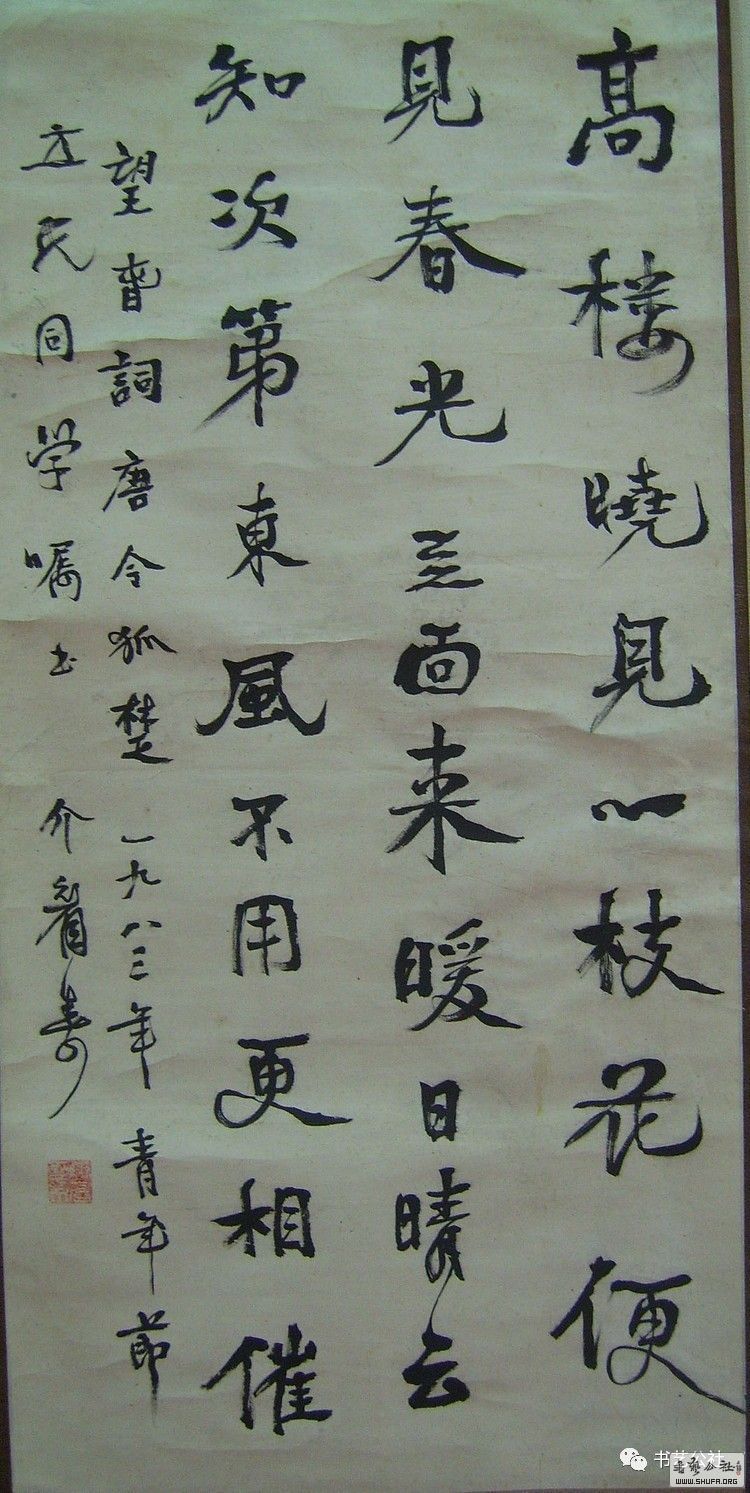 高楼曉見一枝花便
見春光亖面来暖日晴云
知次第東風不用更相催
望春詞唐令狐楚一九八三年青年節
民同学嘱书 介眉寿
书艺公社
书艺公社
WWW.SHUFA.ORG